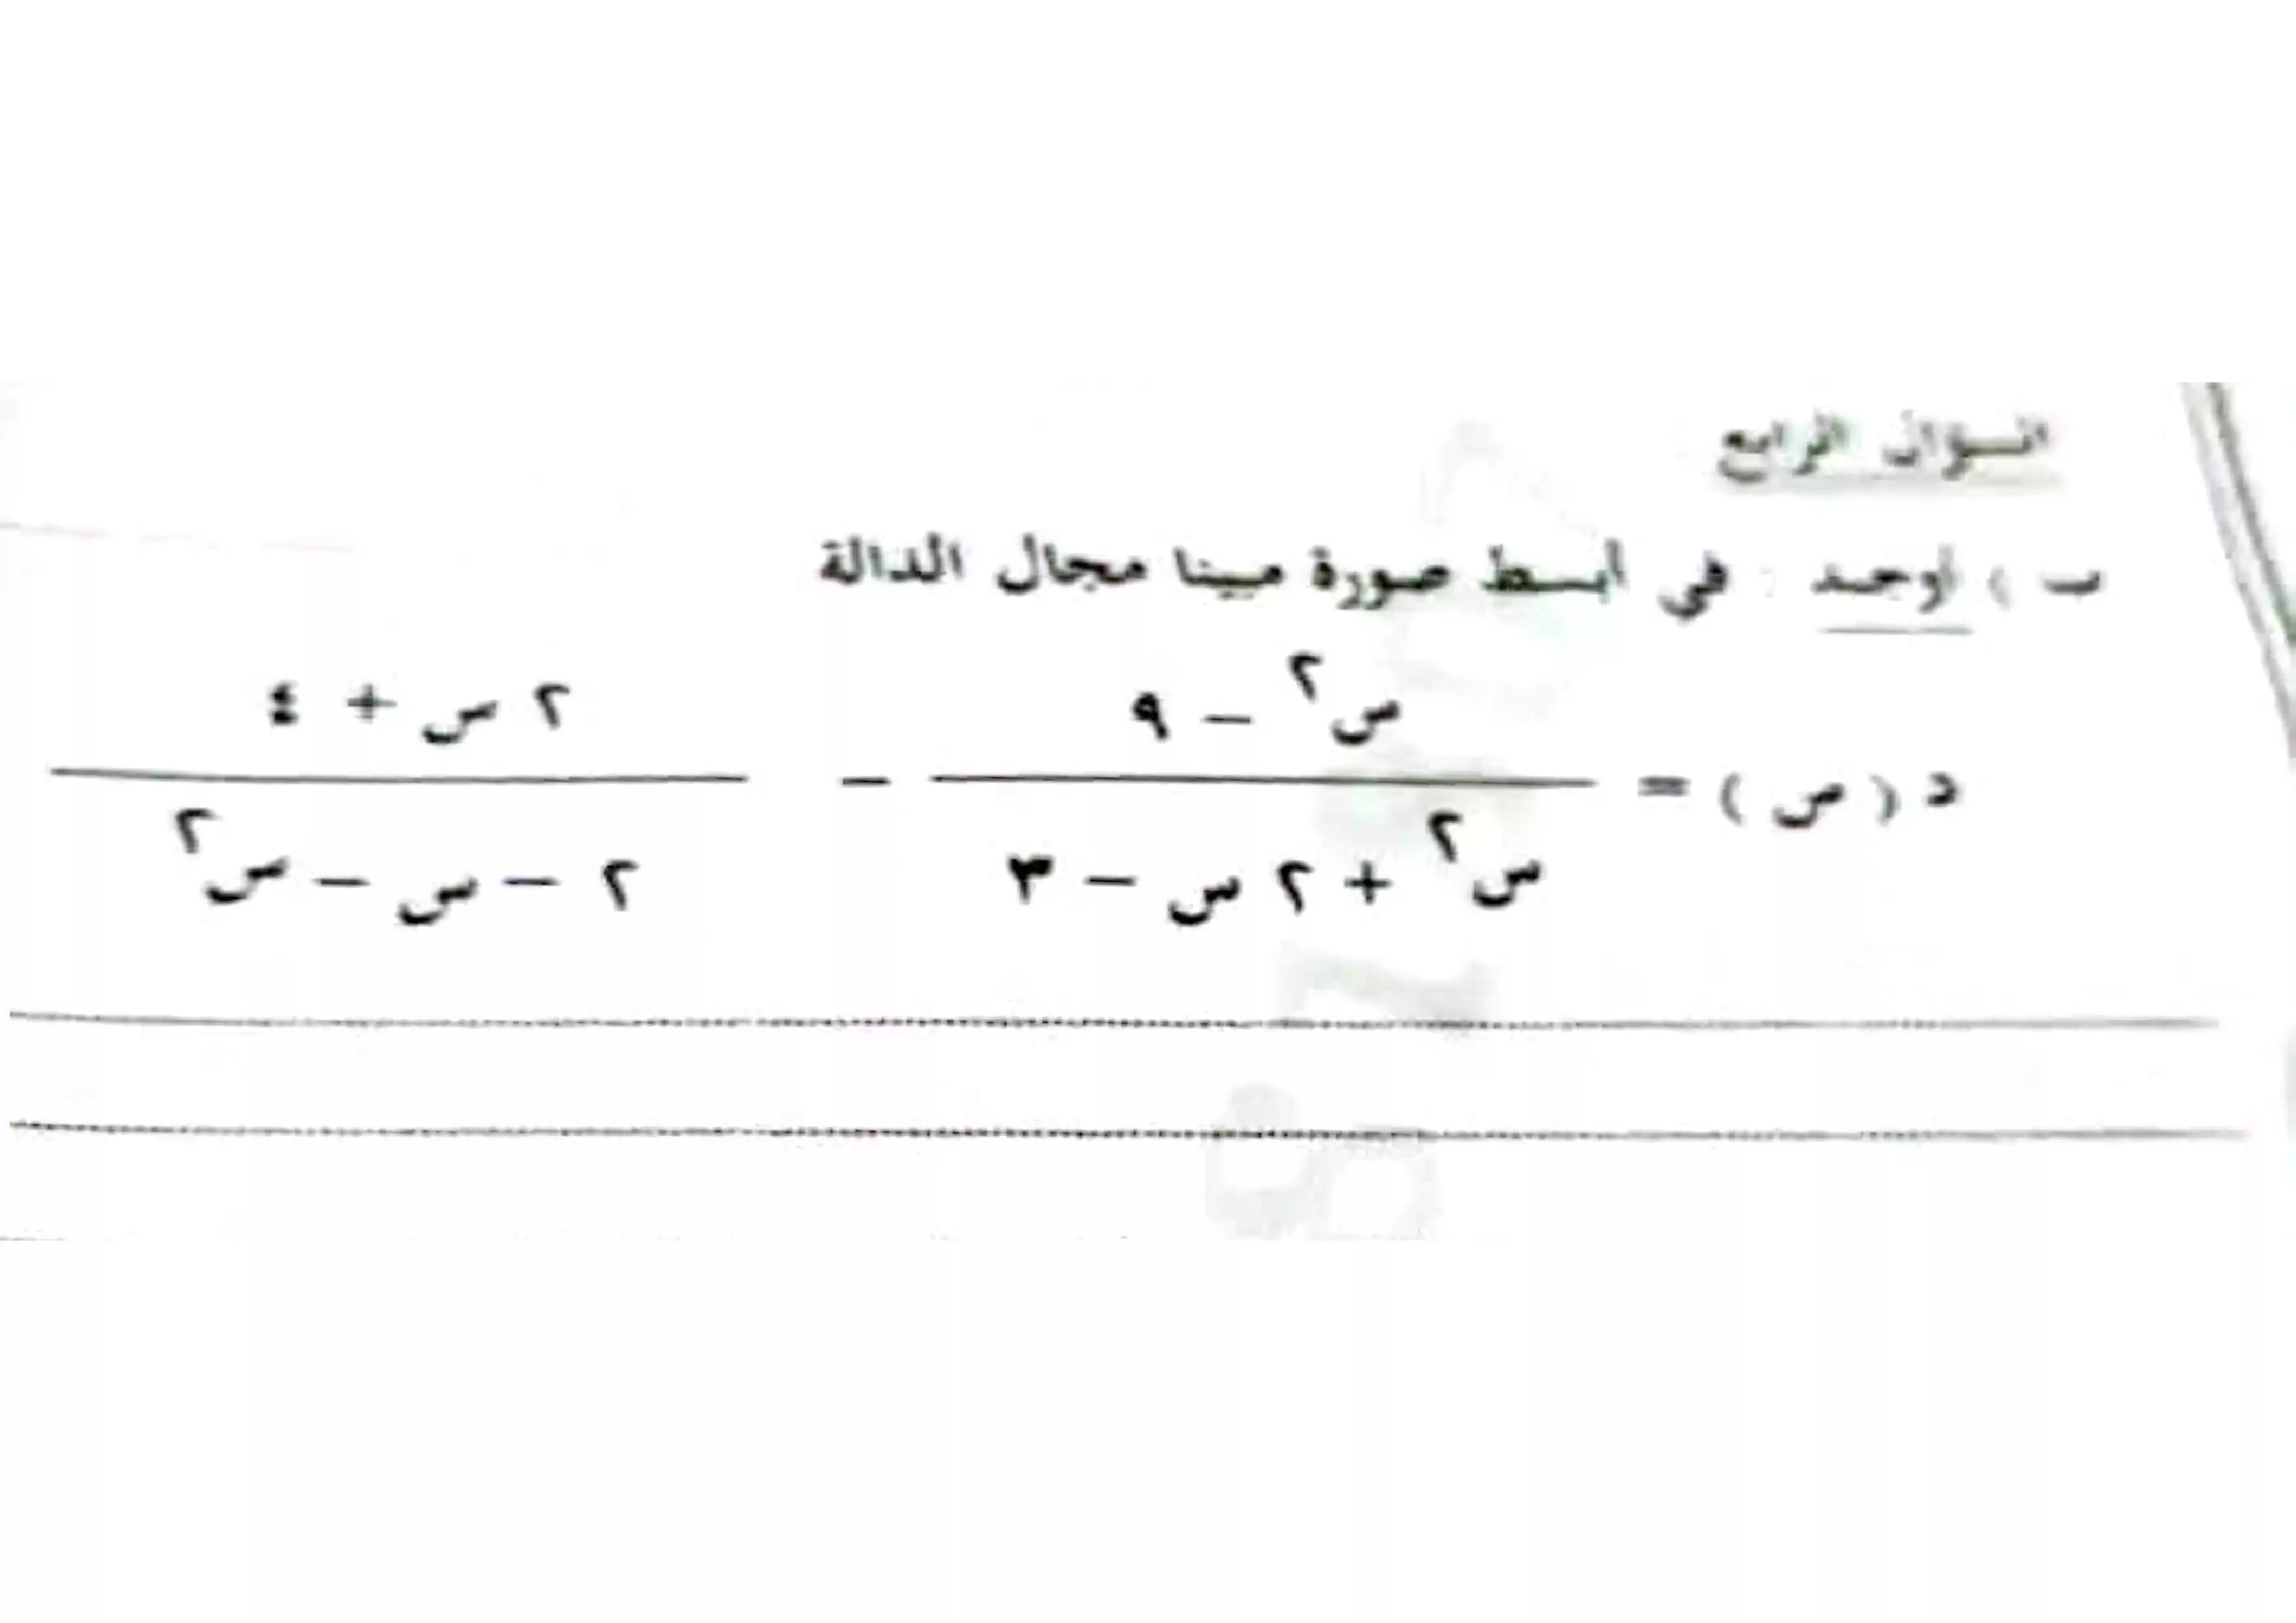 السؤال الرابع
ب ) أوجد : في أبسط صورة مبينا مجال الدالة
د ( س ) = (س² − ٩) / (س² + ٢ س − ٣) − (٢ س + ٤) / (٢ − س − س²)